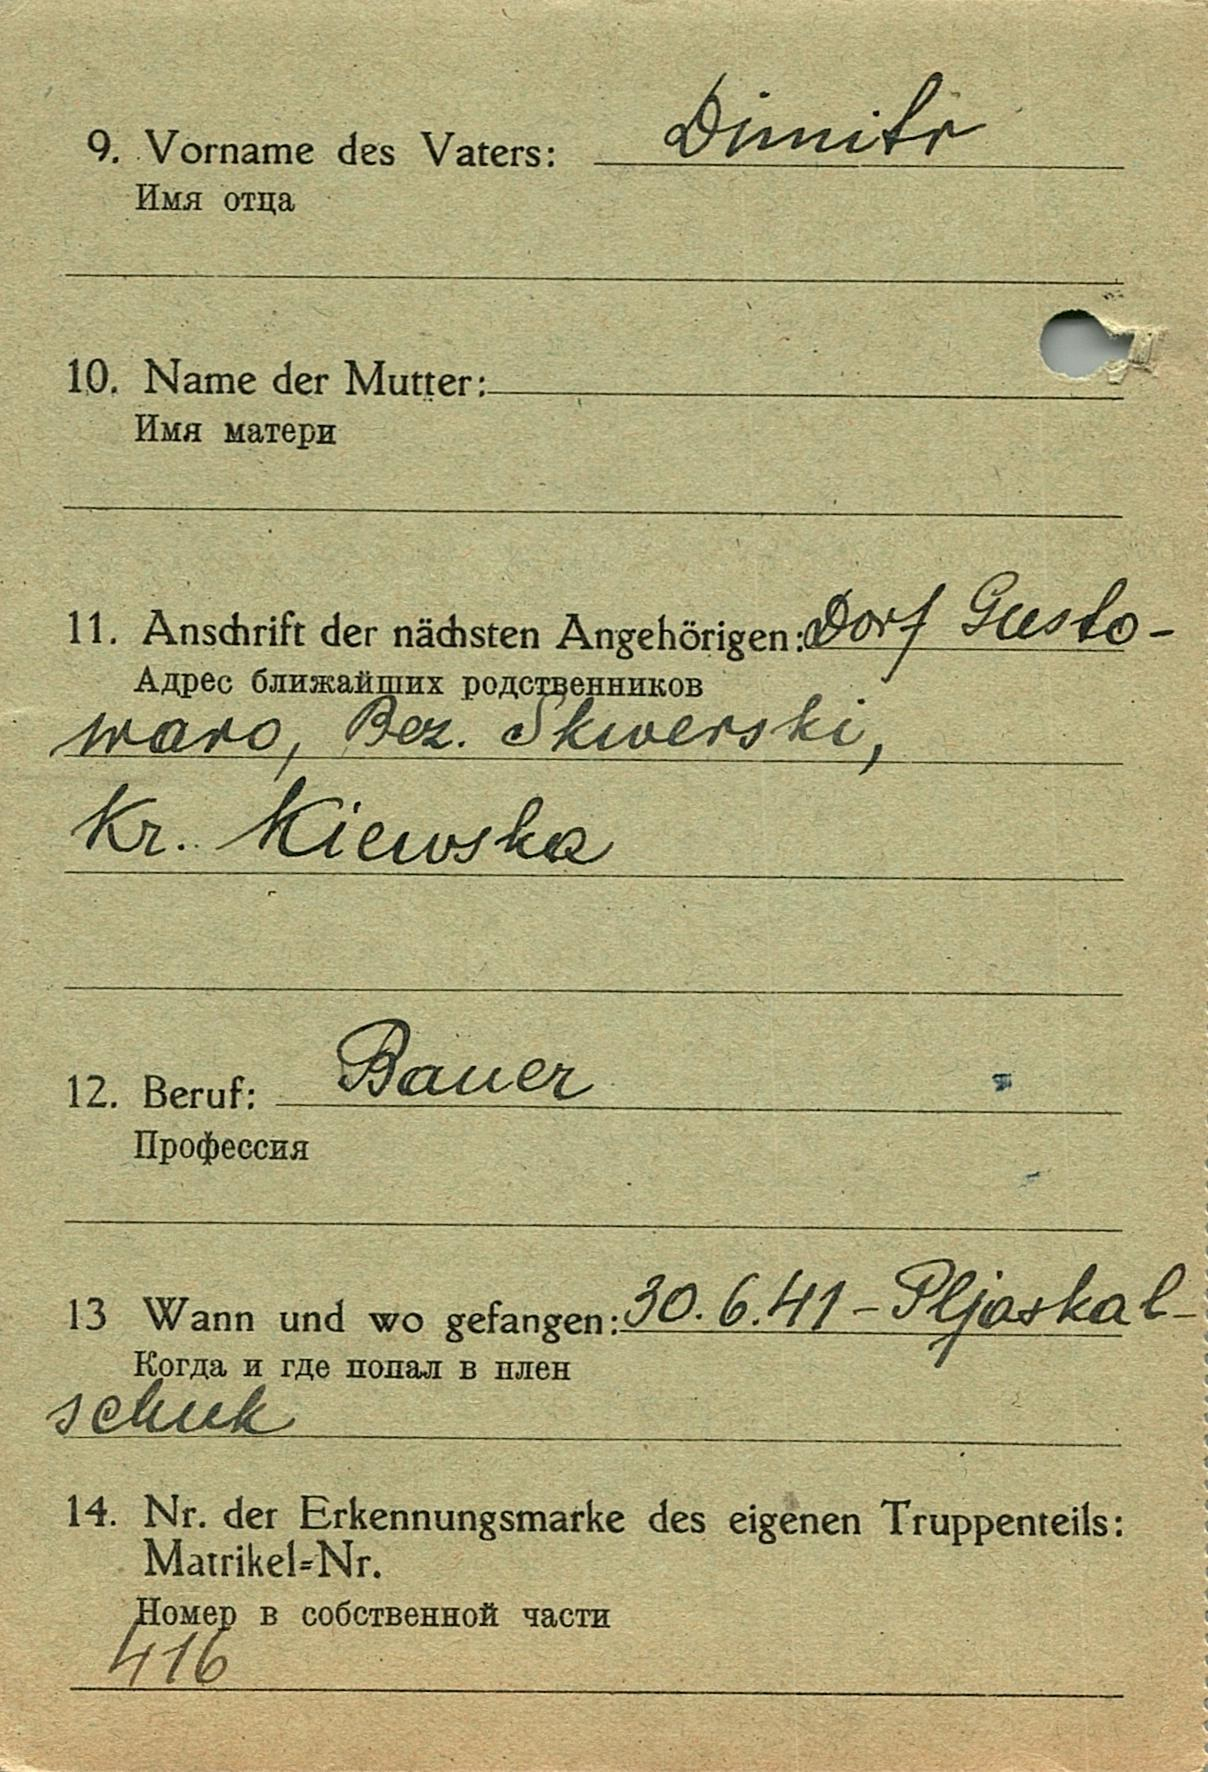 9. Vorname des Vaters: Dimitr
Имя отца
10. Name der Mutter:
Имя матери
11. Anschrift der nächsten Angehörigen: Dorf Gusto-
Адрес ближайших родственников
waro, Bez. Skwerski,
Kr. Kiewska
12. Beruf: Bauer
Профессия
13 Wann und wo gefangen: 30.6.41 - Pljaskal-
Когда и где попал в плен
schuk
14. Nr. der Erkennungsmarke des eigenen Truppenteils:
Matrikel=Nr.
Номер в собственной части
416